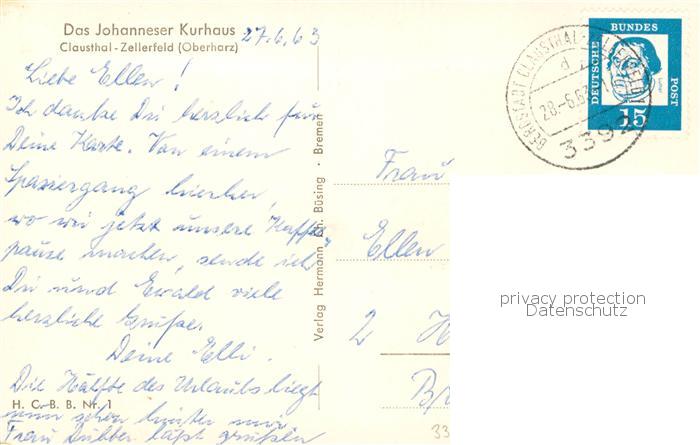 Das Johanneser Kurhaus
Clausthal-Zellerfeld (Oberharz)
27.6.63
Liebe Ellen!
Ich danke Dir herzlich für
Deine Karte. Von einem
Spaziergang hierher,
wo wir jetzt unsere Kaffee
pause machen, sende ich
Dir und Ewald viele
herzliche Grüße.
Deine Elli.
Die Hälfte des Urlaubs liegt
nun schon hinter uns
Frau Dübber läßt grüßen
H. C. B. B. Nr. 1
Verlag Hermann Ch. Büsing · Bremen
DEUTSCHE BUNDES POST
Luther
15
BERGSTADT CLAUSTHAL-ZELLERFELD 1
d
28.-6.63
3392
Frau
Ellen
2 H
Br
33
privacy protection
Datenschutz